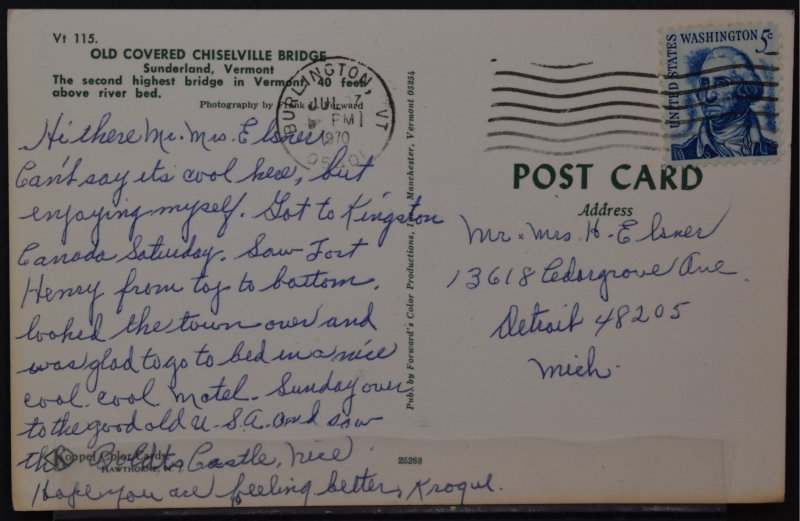 Vt 115.
OLD COVERED CHISELVILLE BRIDGE
Sunderland, Vermont
The second highest bridge in Vermont, 40 feet
above river bed.
Photography by Frank Forward
Hi there Mr. Mrs. Elsner
Can't say its cool here, but
enjoying myself. Got to Kingston
Canada Saturday. Saw Fort
Henry from top to bottom.
looked the town over and
was glad to go to bed in a nice
cool. cool motel. Sunday over
to the good old U.S.A. and saw
the Boldts Castle, nice.
Hope you are feeling better,
Koppel Color Cards
HAWTHORNE, N.J.
Pub. by Forward's Color Productions, Manchester, Vermont 05254
25268
BURLINGTON, VT
JUL
PM
1970
UNITED STATES
WASHINGTON 5c
POST CARD
Address
Mr. Mrs. H. Elsner
13618 Cedargrove Ave.
Detroit 48205
Mich.